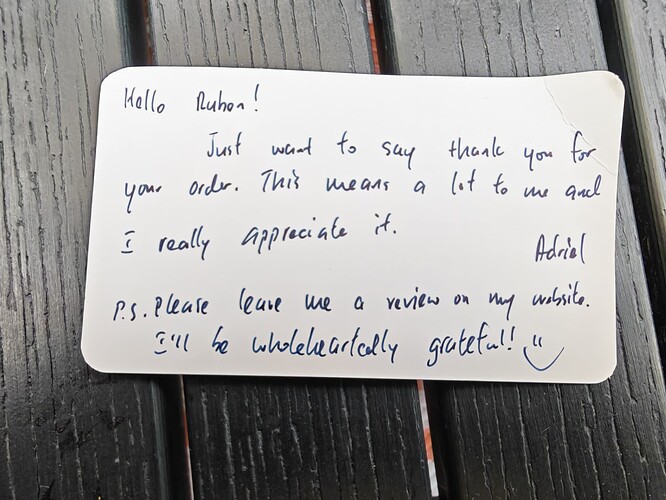 Hello Ruben!
Just want to say thank you for
your order. This means a lot to me and
I really appreciate it.
Adriel
P.S. Please leave me a review on my website.
I'll be wholeheartedly grateful! :)